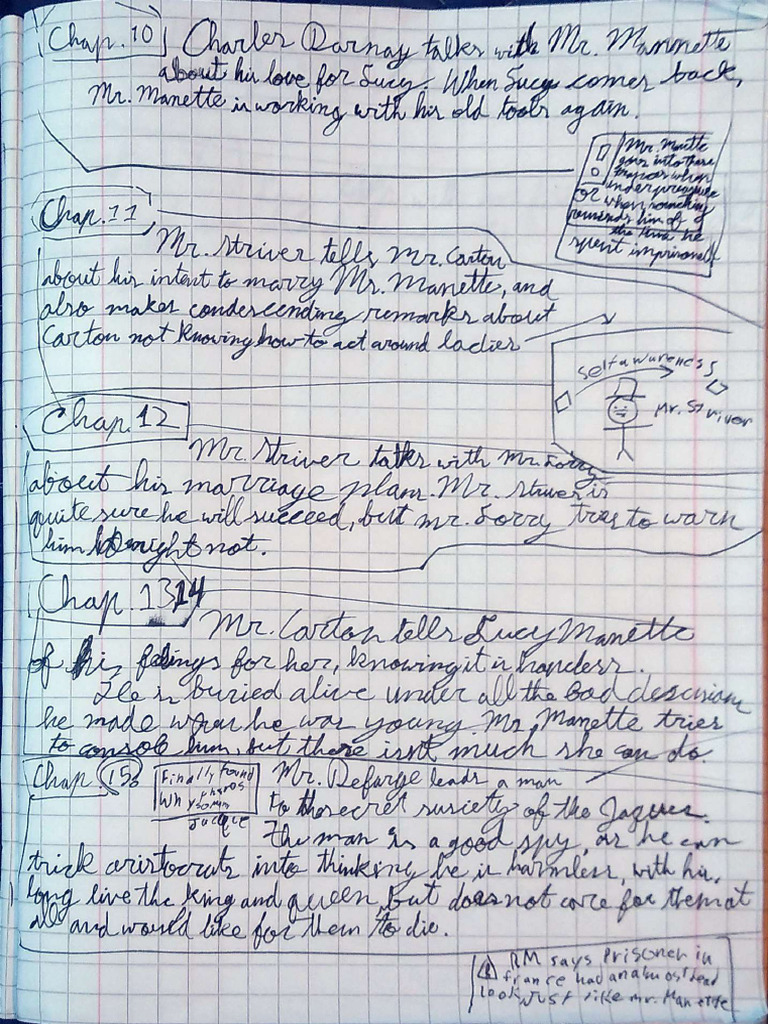 Chap. 10 Charles Darnay talks with Mr. Mannette
about his love for Lucy. When Lucy comes back,
Mr. Manette is working with his old tools again.
Mr. Manette
goes into these
trances when
under pressure
or when something
reminds him of
the time he
spent imprisoned
Chap. 11
Mr. Striver tells Mr. Carton
about his intent to marry Ms. Manette, and
also makes condescending remarks about
Carton not knowing how to act around ladies
Self awareness
Mr. Striver
Chap. 12
Mr. Striver talks with Mr. Lorry
about his marriage plan. Mr. Striver is
quite sure he will succeed, but Mr. Lorry tries to warn
him he might not.
Chap. 13 14
Mr. Carton tells Lucy Manette
of his feelings for her, knowing it is hopeless.
He is buried alive under all the bad descisions
he made when he was young. Ms. Manette tries
to consol him, but there isn't much she can do.
Chap 15
Finally found
why
Jacque
Mr. Defarge leads a man
to the secret suciety of the Jaques.
The man is a good spy, as he can
trick aristocrats into thinking he is harmless, with his
long live the king and queen, but does not care for them at
all and would like for them to die.
RM says Prisoner in
france had an almost dead
look just like mr. Manette